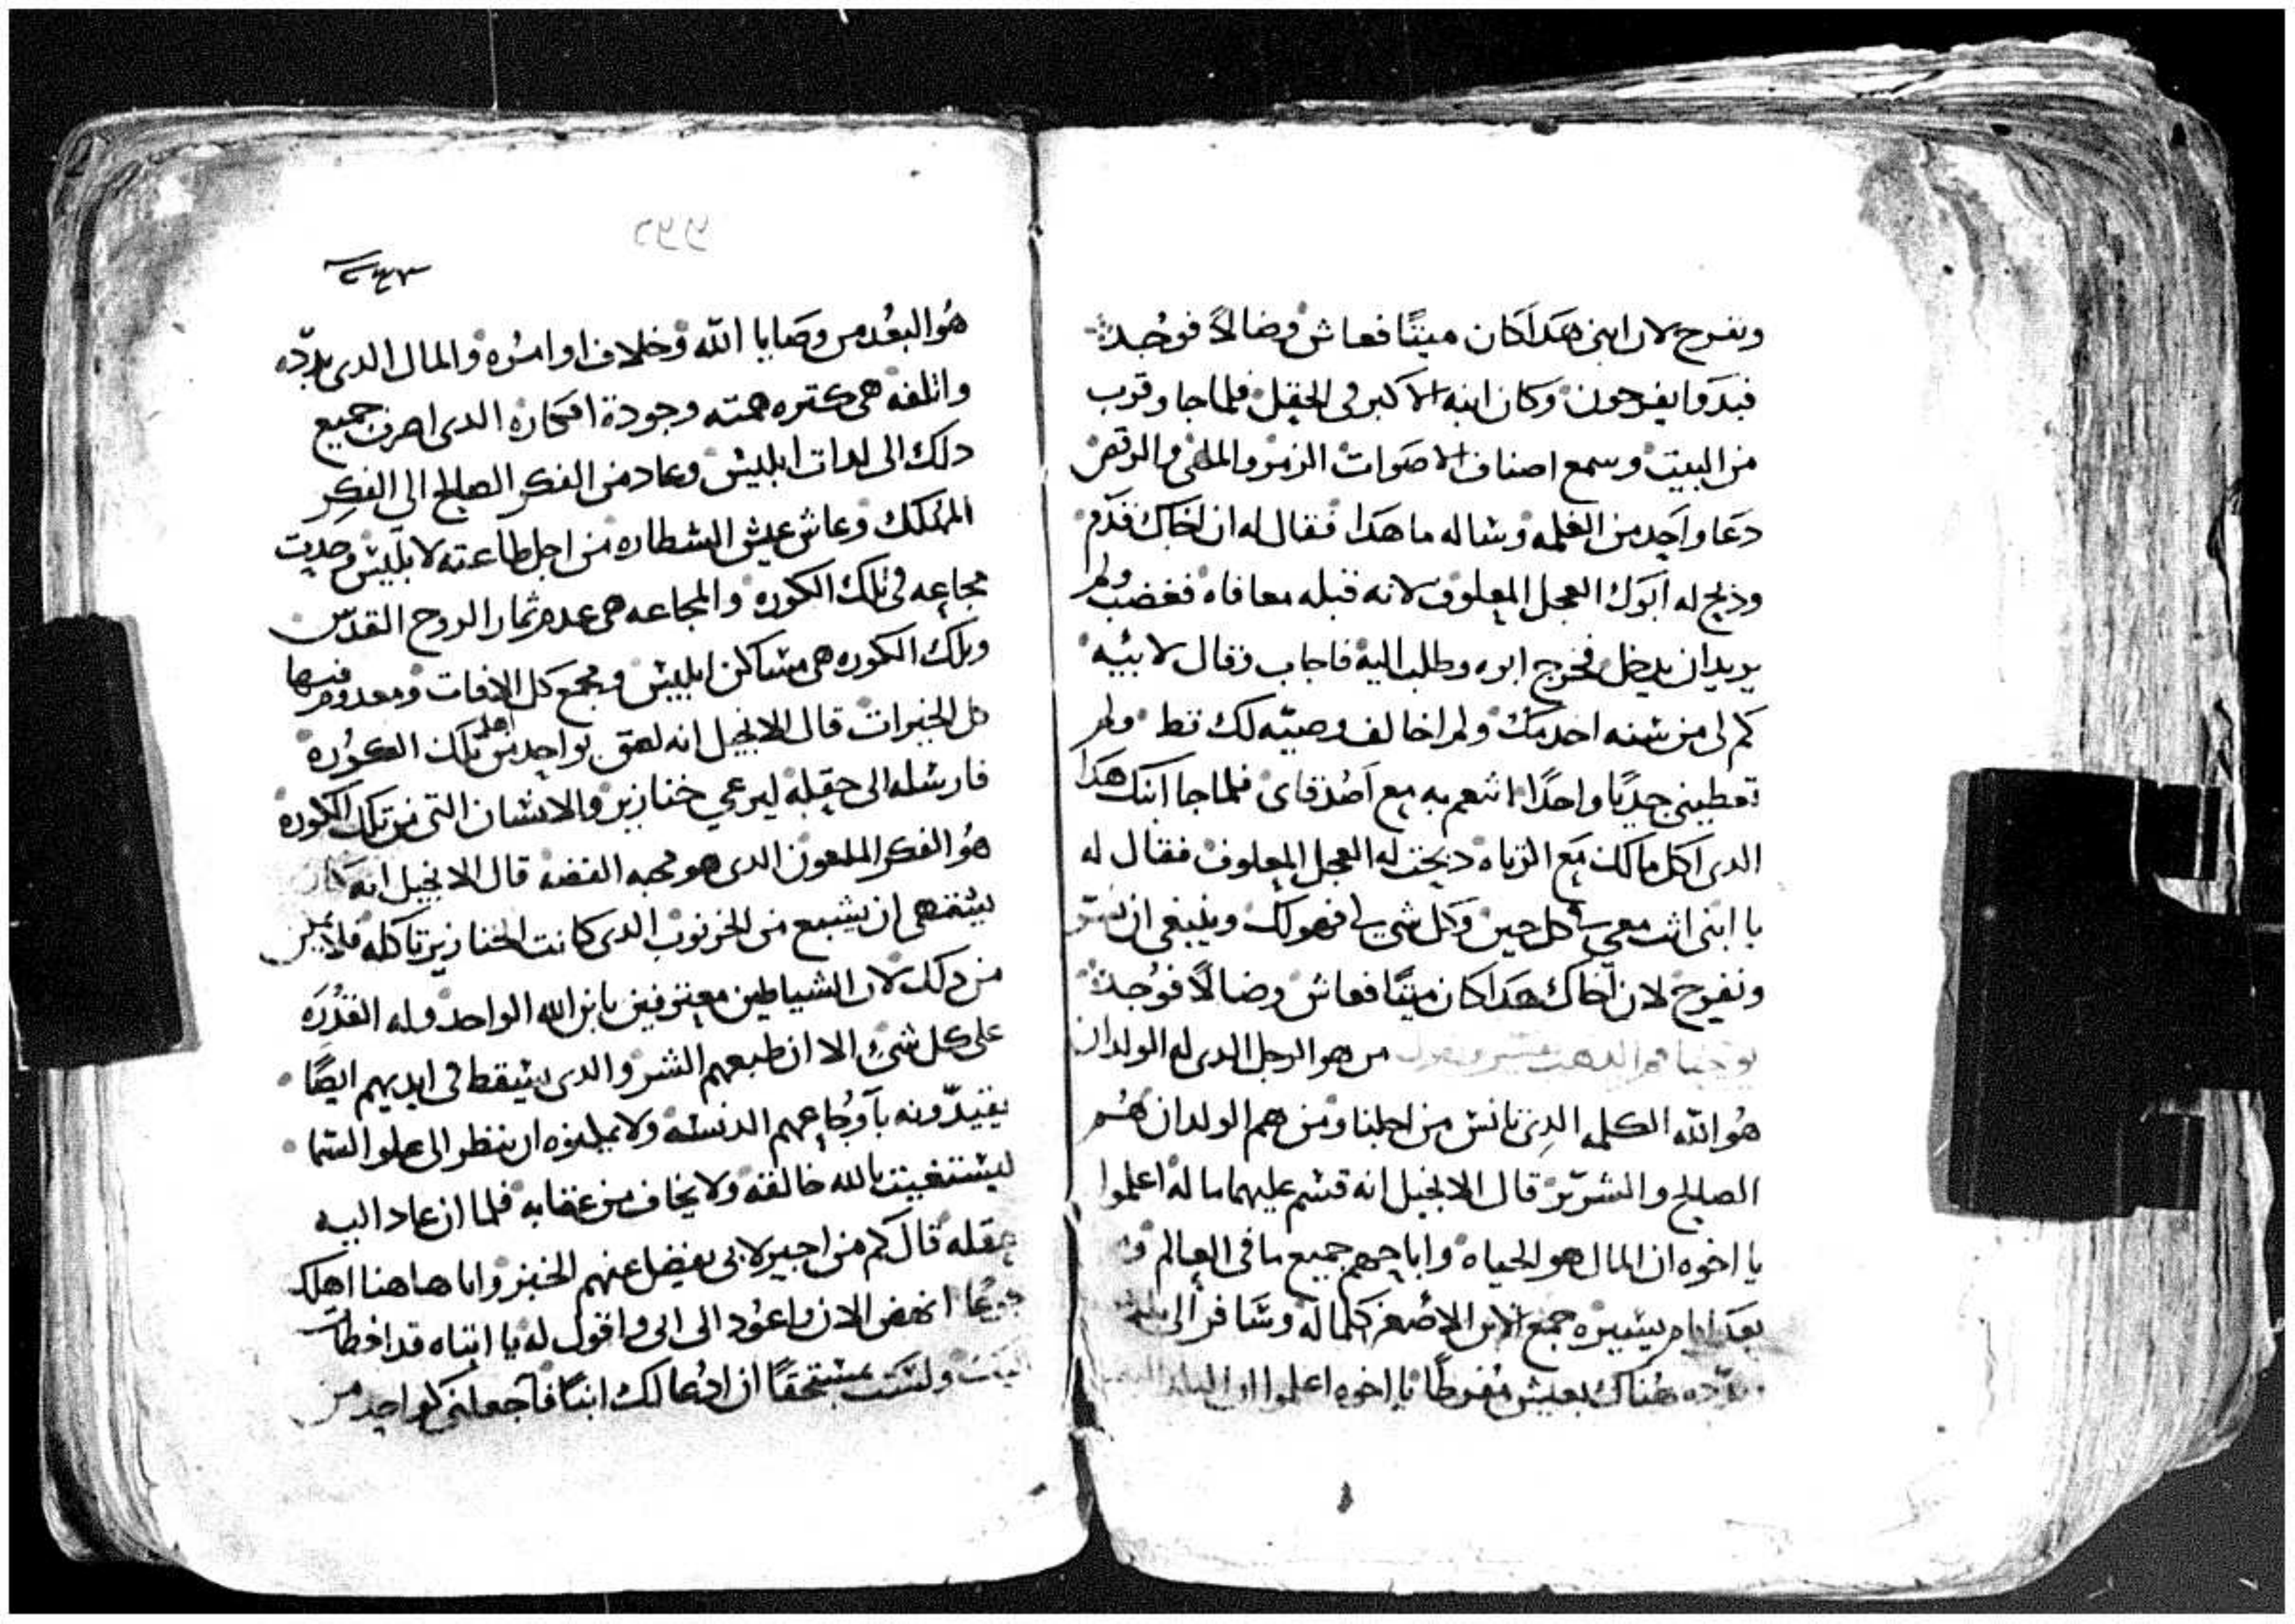 ونفرح لان ابني هدا كان ميتًا فعاش وضالاً فوُجد
فبدوا يفرحون وكان ابنه الاكبر في الحقل فلما جا وقرب
من البيت وسمع اصناف الاصوات الزمر والملهى والرقص
دعا واحد من الغلمه وساله ما هدا فقال له ان اخاك قدم
ودبح له ابوك العجل المعلوف لانه قبله معافاه فغضب ولم
يريد ان يدخل فخرج ابوه وطلب اليه فاجاب وقال لابيه
كم لي من سنه اخدمك ولم اخالف وصيه لك قط ولم
تعطيني جديًا واحدًا اتنعم به مع اصدقاى فلما جا ابنك هدا
الدى اكل مالك مع الزناه دبحت له العجل المعلوف فقال له
يا ابنى انت معي في كل حين وكل شي لي فهو لك وينبغي ان نسر
ونفرح لان اخاك هدا كان ميتًا فعاش وضالاً فوُجد
يوحنا فم الدهب يفسر ويقول من هو الرجل الدى له الولدان
هُو الله الكلمه الدى تانس من اجلنا ومن هم الولدان هُم
الصالح والشرير قال الانجيل انه قسم عليهما ماله اعلموا
يا اخوه ان المال هو الحياه واباحهم جميع ما في العالم و
بعد ايام يسيره جمع الابن الاصغر كلما له وسافر الى
هُناك بعيش مُفرطًا يا اخوه اعلموا ان البلد
٢٤٣
هُو البعُد من وصايا الله وخلاف اوامُره والمال الدى بدّده
واتلفه هى كتره همته وجودة افكاره الدى اصرف جميع
دلك الى لدات ابليس وعاد من الفكر الصالح الي الفكر
المهلك وعاش عيش الشطاره من اجل طاعته لابليس وحدت
مجاعه في تلك الكوره والمجاعه هى عدم ثمار الروح القدس
وتلك الكوره هى مساكن ابليس ومجمع كل الافات ومعدوم فيها
كل الخيرات قال الانجيل انه لصق بواحد من اهل تلك الكوُره
فارسله الى حقله ليرعي خنازير والانسان التى من تلك الكوره
هُو الفكر الملعون الدى هو محبه الفضه قال الانجيل انه كان
يشتهى ان يشبع من الخرنوب الدى كانت الخنازير تاكله فلا يملى
من دلك لان الشياطين معترفين بابن الله الواحد وله القدُره
على كل شيُ الا ان طبعهم الشر والدى يسقط في ايديهم ايضًا
يقيدّونه باوجُاعهم الدنسه ولا يملوه ان ينظر الى علو السما
ليستغيت بالله خالقه ولا يخاف من عقابه فلما ان عاد اليه
عقله قال كم من اجير لابى يفضل عنهم الخبز وانا هاهنا اهلك
جوعُا انهض الان واعوُد الى ابى واقول له يا ابتاه قد اخطات
ولست مستحقًا ان ادُعا لك ابنًا فاجعلني كواحد من